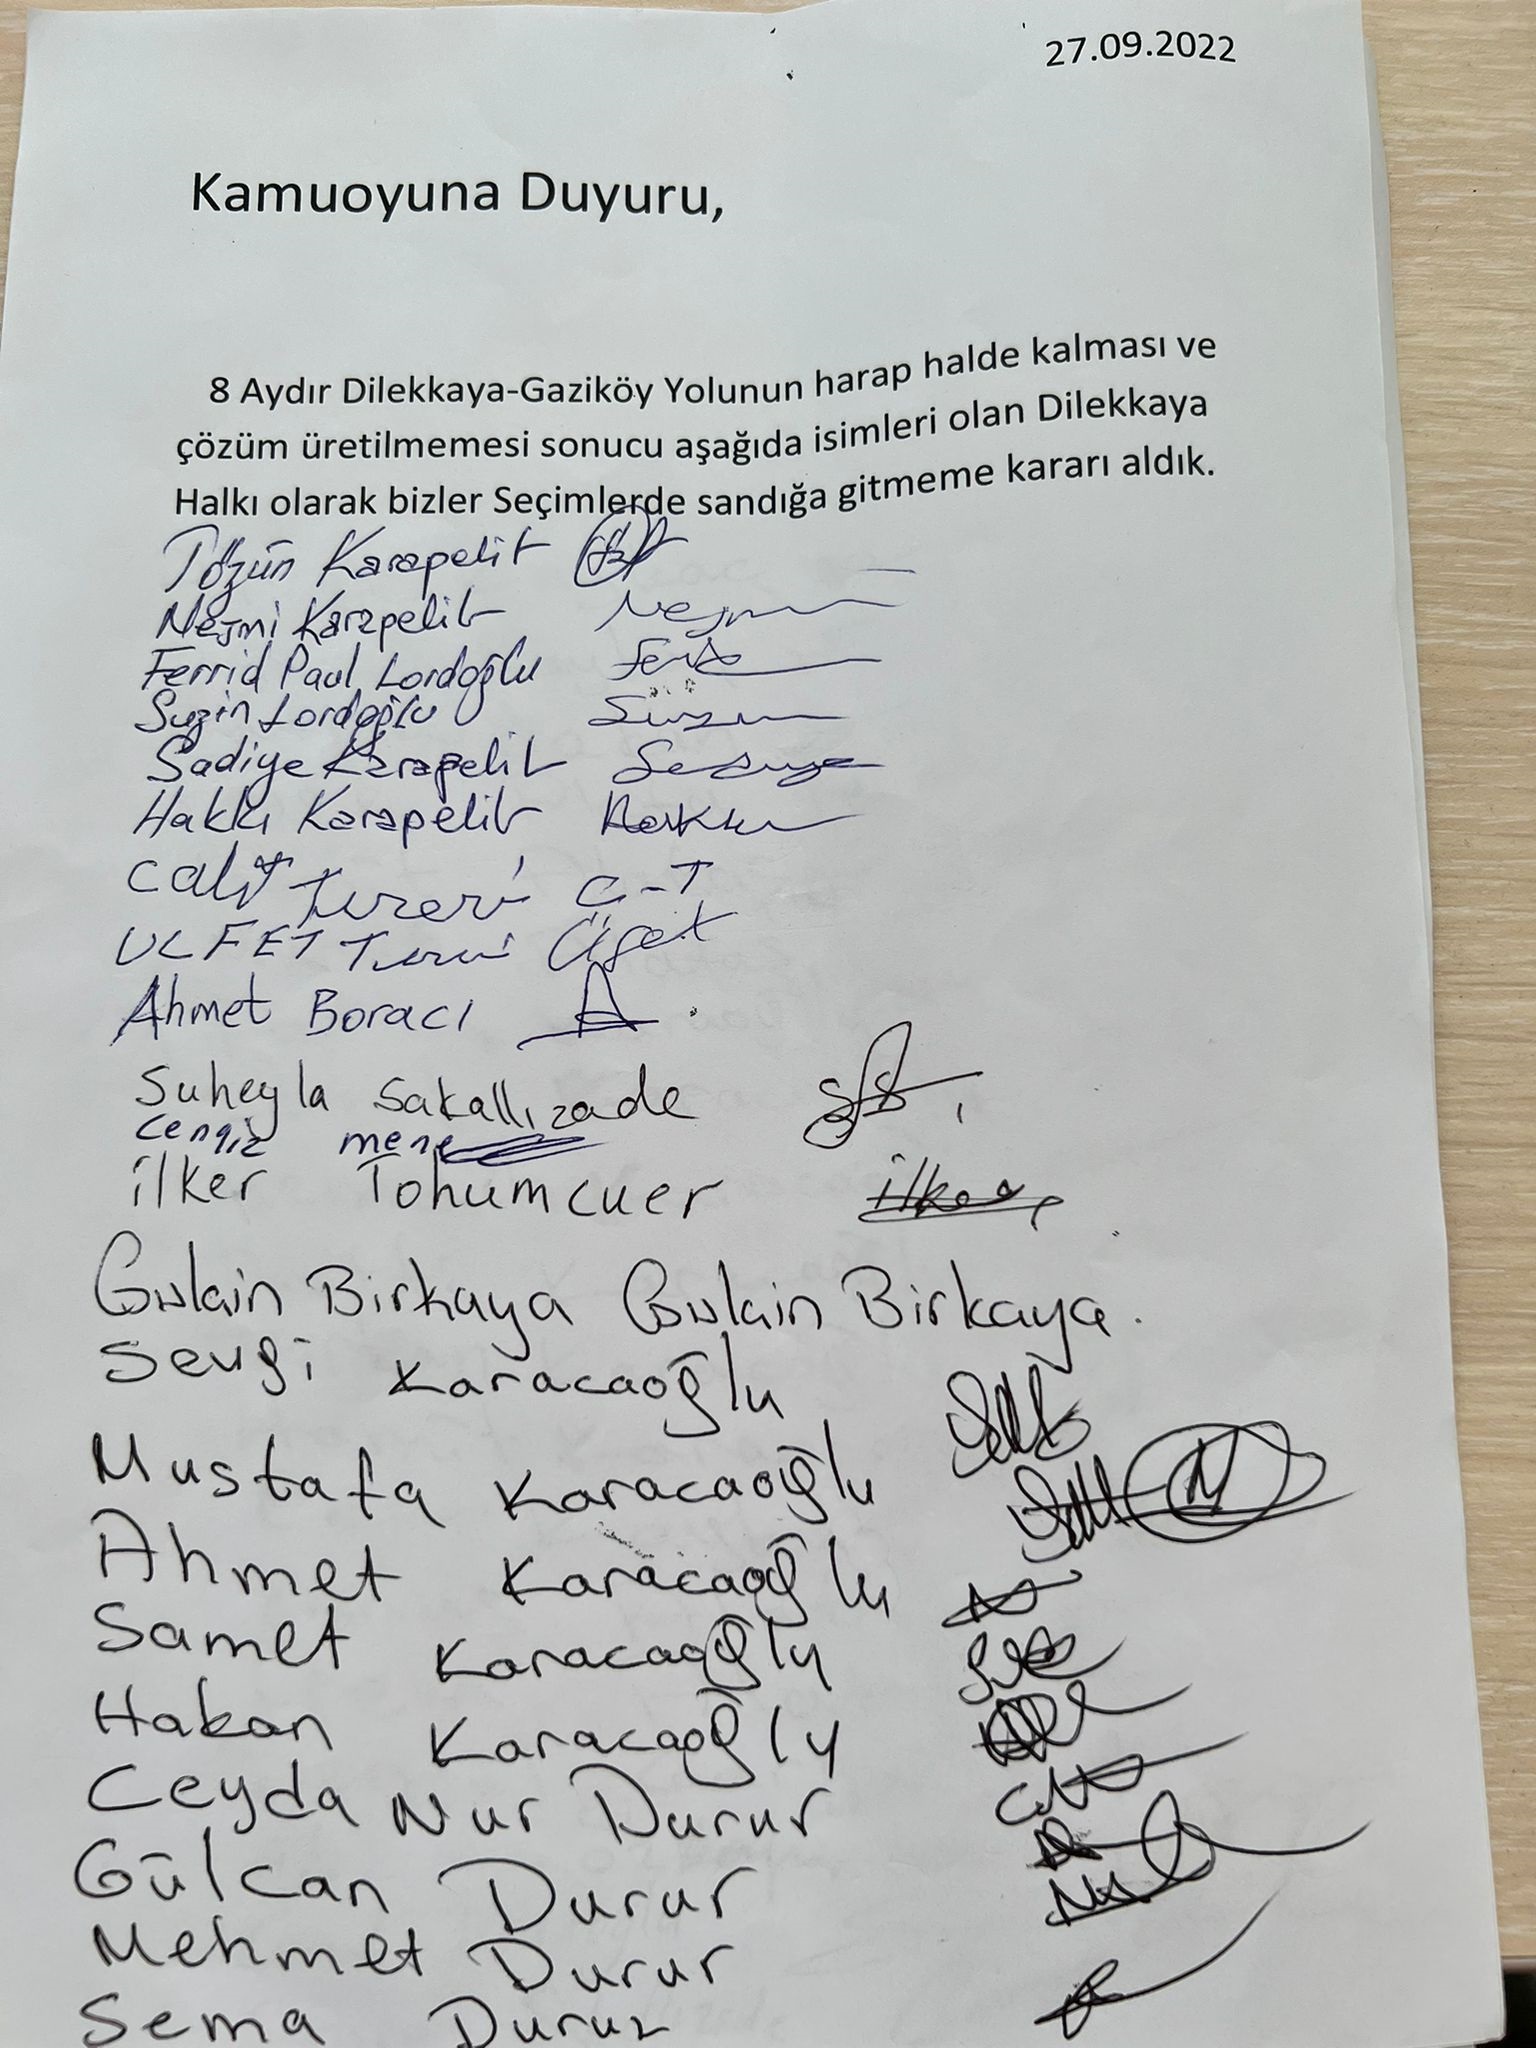 27.09.2022
Kamuoyuna Duyuru,
8 Aydır Dilekkaya-Gaziköy Yolunun harap halde kalması ve
çözüm üretilmemesi sonucu aşağıda isimleri olan Dilekkaya
Halkı olarak bizler Seçimlerde sandığa gitmeme kararı aldık.
Tözün Karapelit
Nejmi Karapelit Nejmi
Ferrid Paul Lordoğlu Ferid
Suzin Lordoğlu Suzin
Sadiye Karapelit Sadiye
Hakkı Karapelit Hakkı
Calit C-T
ULFET Ülfet
Ahmet Boracı A
Suheyla Sakallızade
Cengiz
ilker Tohumcuer ilker
Gulain Birkaya Gulain Birkaya.
Sevgi Karacaoğlu
Mustafa Karacaoğlu
Ahmet Karacaoğlu
Samet Karacaoğlu
Hakan Karacaoğlu
Ceyda Nur Durur
Gülcan Durur
Mehmet Durur
Sema Durur